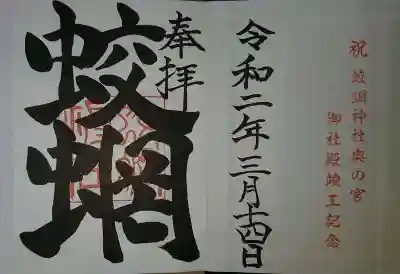 祝 蛟蝄神社奥の宮
御社殿竣工記念
令和二年三月十四日
奉拝
蛟蝄